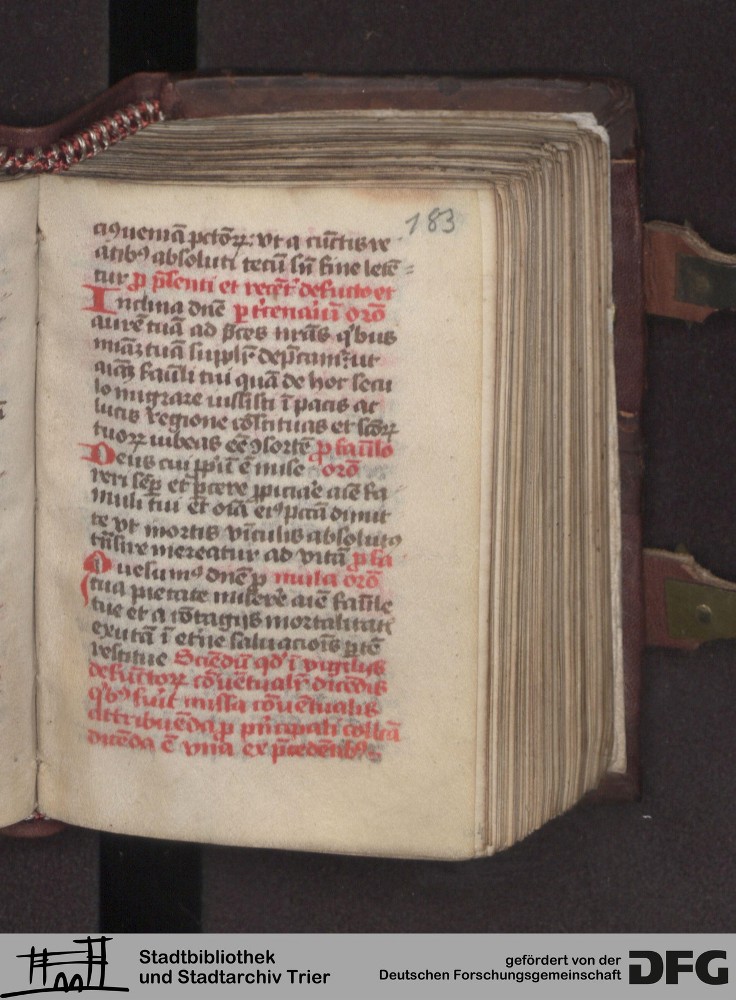 183
q̄ꝫ veniā pctōꝝ: vt a cūctis re
atibꝰ absoluti tecū sn̄ fine lete⸗
tur p̄ p̄senti et recēt' defūcto et
Inclina dn̄e p tricenariū orō
aurē tuā ad p̄ces nr̄as q'bus
miāꝫ tuā supplr̄ dep̄camr̄: ut
aīaꝫ famli tui quā de hoc secu
lo migrare iussisti ī pacis ac
lucis regione cōstituas et scōꝝ
tuoꝝ iubeas eē ꝯsortē p̄ famlo
Deus cui ꝓpiū ē mise orō
reri sēp et ꝑcere ꝓpiciare aīe fa
muli tui et oīa eiꝰ pctā dimit
te vt mortis vīculis absolutꝰ
trāsire mereatur ad vitā p̄ fa
Quesumꝰ dn̄e p̄ mula orō
tua pietate miserē aīe famle
tue et a cōtagijs mortalitatis
exutā ī et'ne saluacōis ptē
restitue Sciēdū qd' ī vigilijs
defūctoꝝ cōuētualr̄ dicēdis
q'bꝰ fuīt missa cōuētualis
attribuēda p̄ pn̄cipali collcā
dicēda ē vna ex p̄cedētibꝰ
Stadtbibliothek
und Stadtarchiv Trier
gefördert von der
Deutschen Forschungsgemeinschaft
DFG